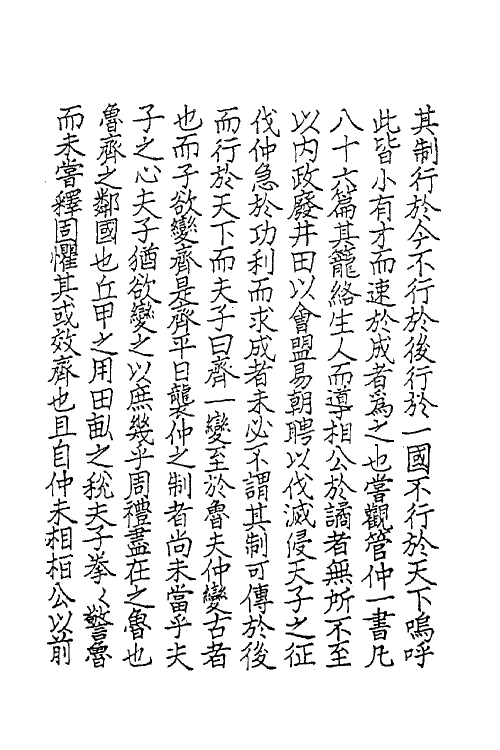 其制行於今不行於後行於一國不行於天下嗚呼
此皆小有才而速於成者為之也嘗觀管仲一書凡
八十六篇其籠絡生人而導相公於譎者無所不至
以内政廢井田以會盟易朝聘以伐滅侵天子之征
伐仲急於功利而求成者未必不謂其制可傳於後
而行於天下而夫子曰齊一變至於魯夫仲變古者
也而子欲變齊是齊平日襲仲之制者尚未當乎夫
子之心夫子猶欲變之以庶幾乎周禮盡在之魯也
魯齊之鄰國也丘甲之用田畝之稅夫子拳〻警魯
而未嘗釋固懼其或效齊也且自仲未相桓公以前